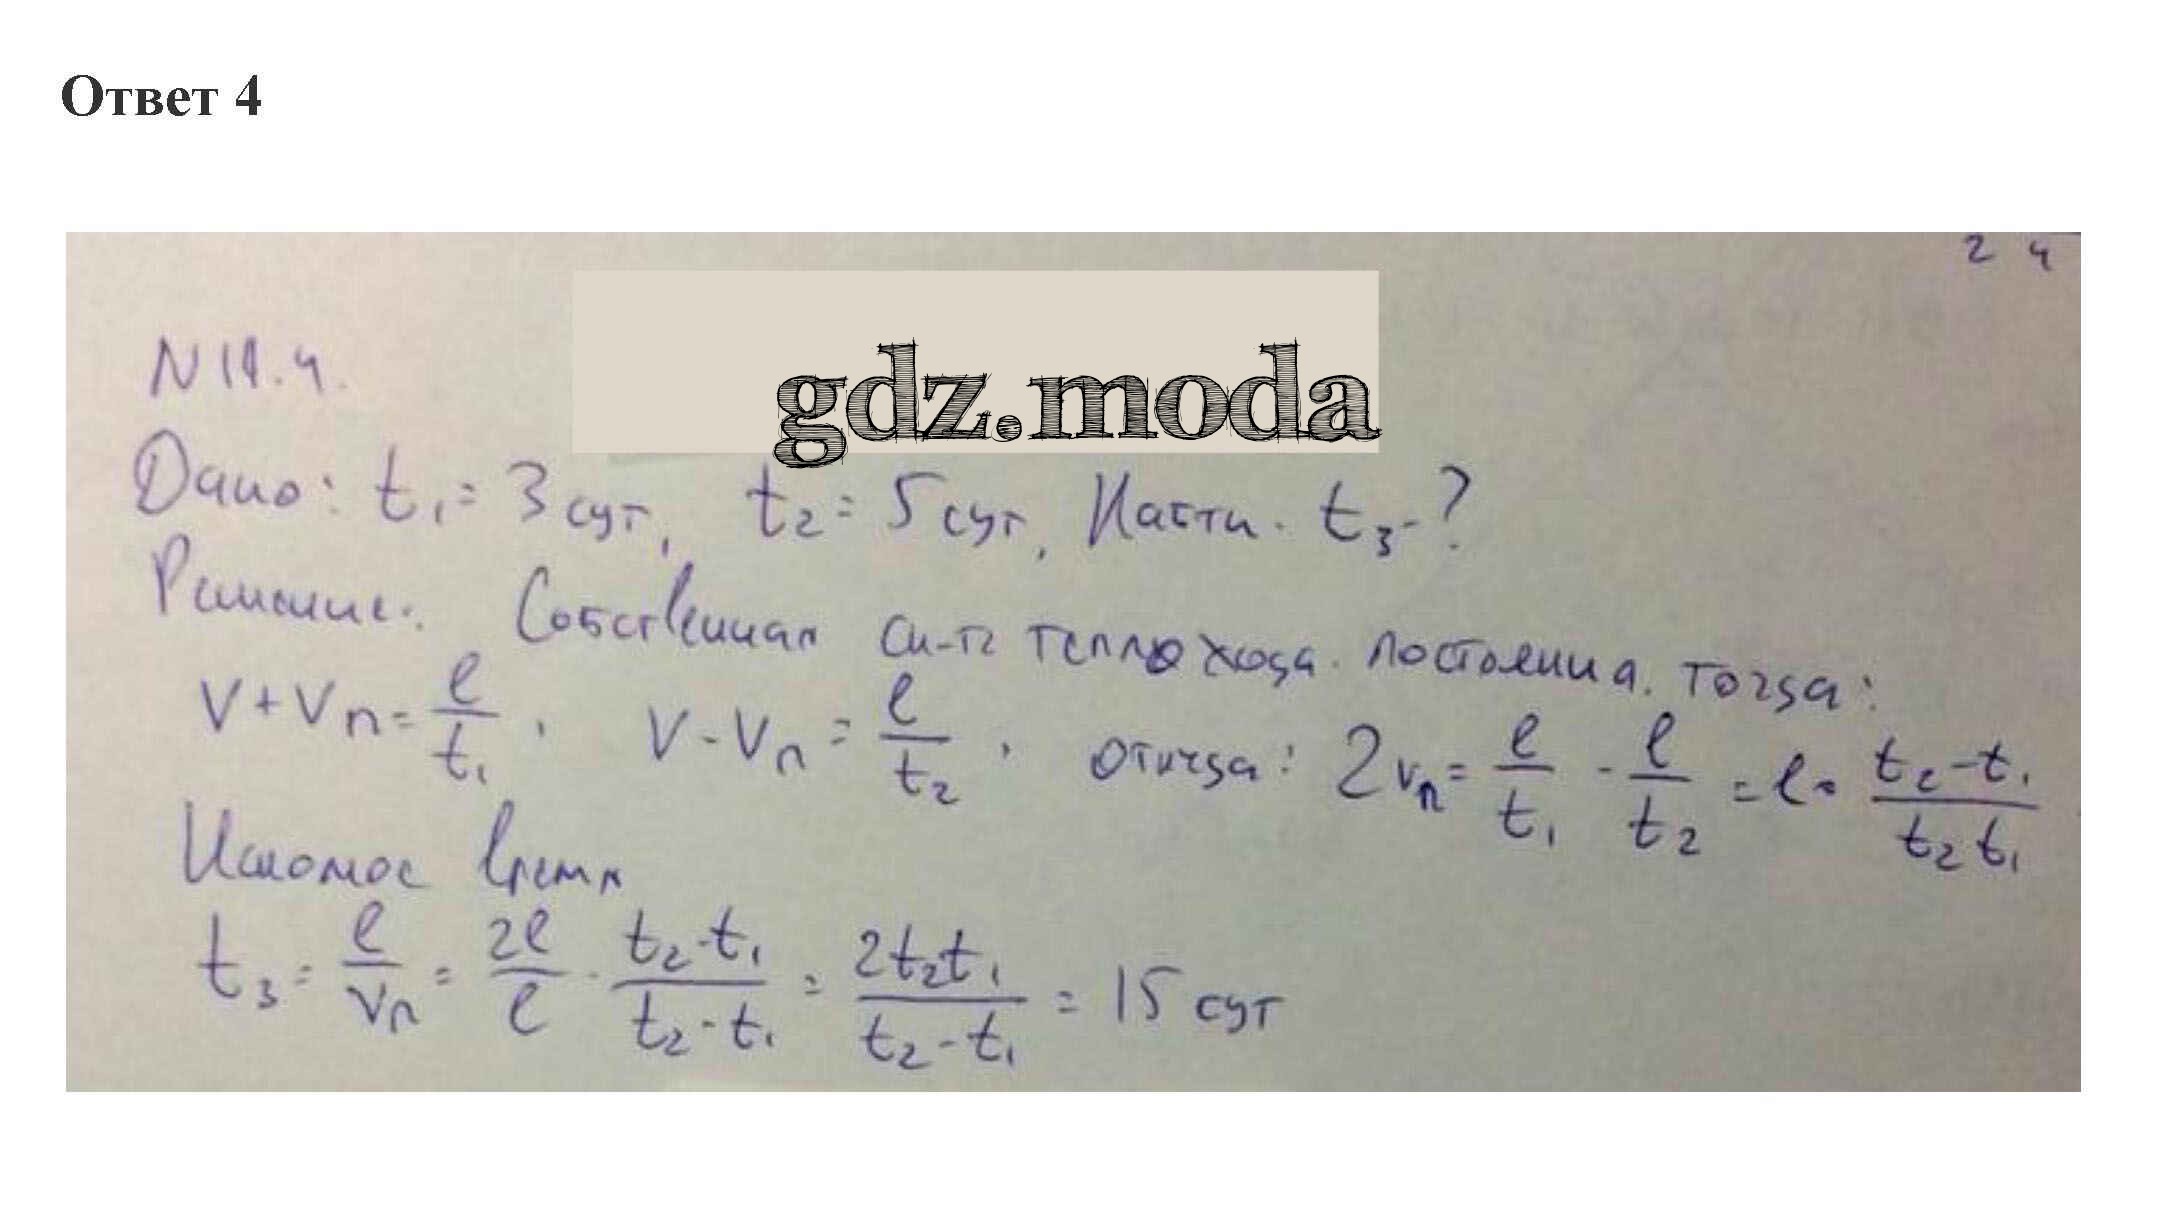 Ответ 4
2 4
gdz.moda
N 18.4.
Дано: t₁ = 3 сут, t₂ = 5 сут, Найти. t₃ - ?
Решение: Собственная ск-ть теплохода. постоянна. тогда:
v + vп = l/t₁, v - vп = l/t₂, откуда: 2vп = l/t₁ - l/t₂ = l · (t₂ - t₁)/(t₂t₁)
Искомое время
t₃ = l/vп = 2l/l · (t₂ - t₁)/(t₂ - t₁) = 2t₂t₁/(t₂ - t₁) = 15 сут